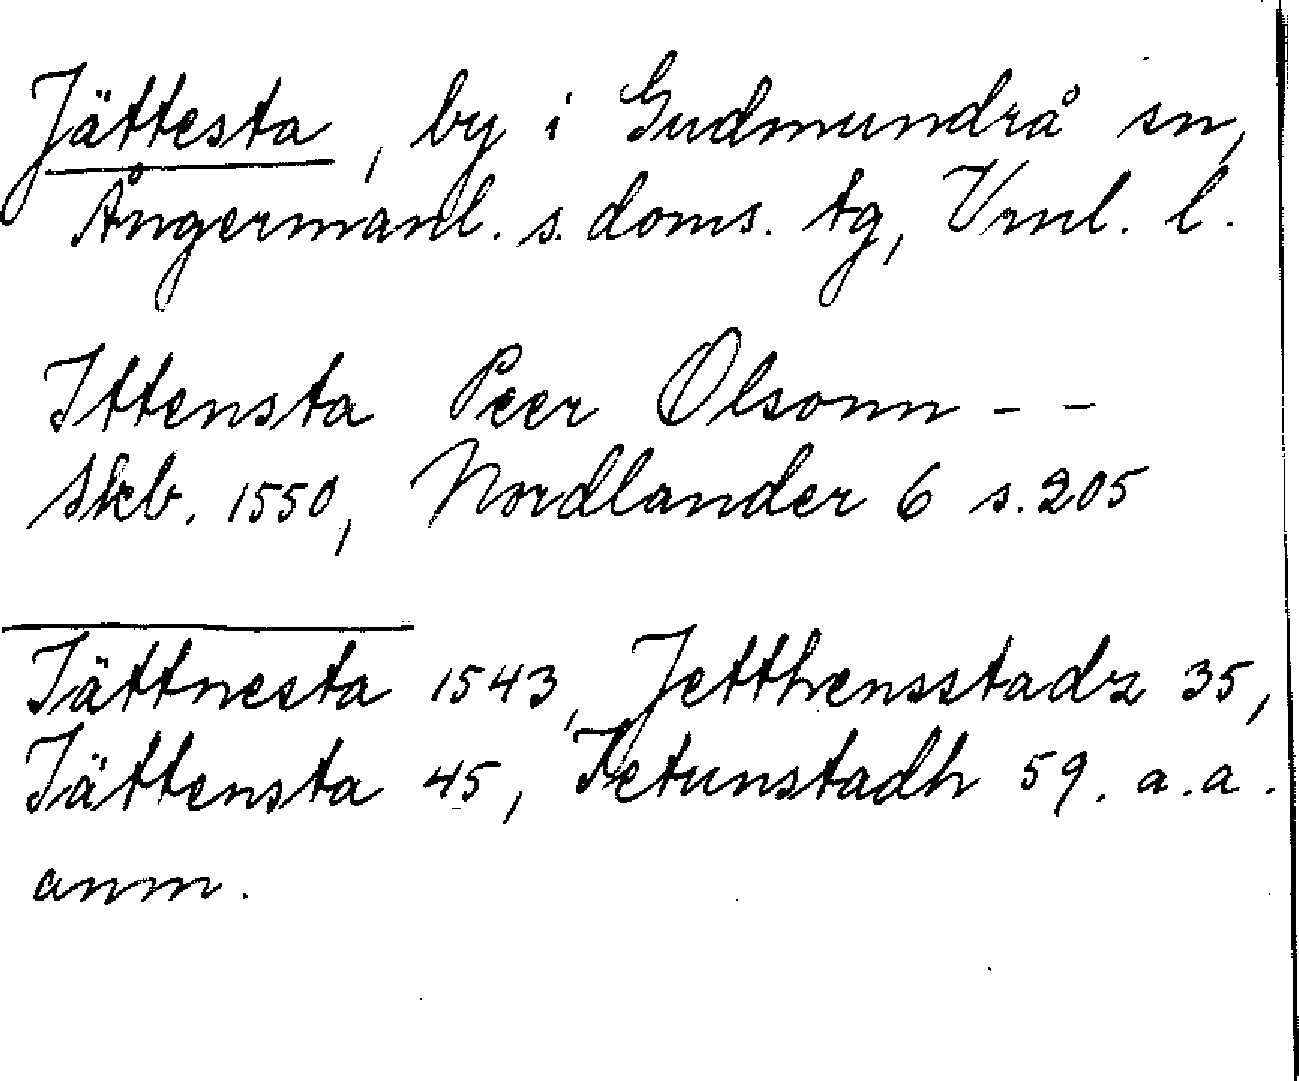 Jättesta, by i Gudmundrå sn,
Ångermanl. s. doms. tg, Vrnl. l.
Ittensta Peer Olsonn - -
Skb. 1550, Nordlander 6 s. 205
Iättnesta 1543, Jetthensstadz 35,
Iättensta 45, Ietunstadh 59. a.a.
anm.